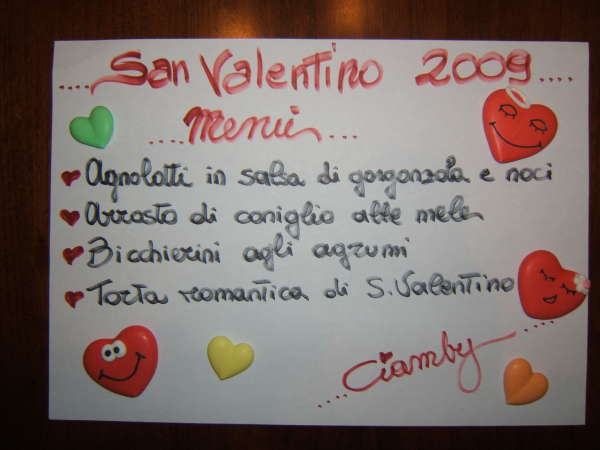 ....San Valentino 2009....
....Menù...
Agnolotti in salsa di gorgonzola e noci
Arrosto di coniglio alle mele
Bicchierini agli agrumi
Torta romantica di S.Valentino
....Ciamby....